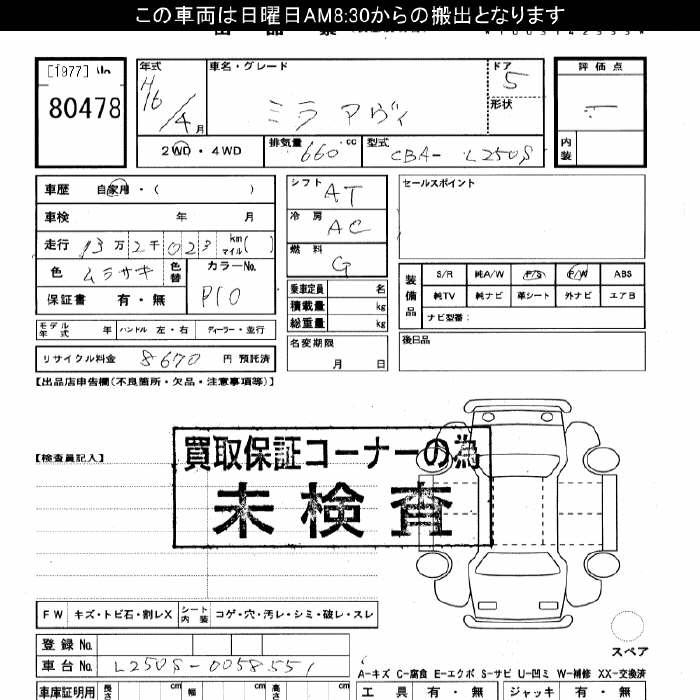 この車両は日曜日AM8:30からの搬出となります
[1977]
80478
年式 車名・グレード ドア
H16/4月 ミラ アヴィ 5
形状
2WD・4WD 排気量 660 cc 型式 CBA- L250S
評価点
内装
車歴 自家用・( )
車検 年 月
走行 13万2千023 km マイル( )
色 ムラサキ 色替 カラーNo. P10
保証書 有・無
モデル年式 年 ハンドル 左・右 ディーラー・並行
リサイクル料金 8670 円 預託済
シフト AT
冷房 AC
燃料 G
乗車定員 名
積載量 kg
総重量 kg
名変期限
月 日
セールスポイント
装備品 S/R 純A/W P/S P/W ABS
純TV 純ナビ 革シート 外ナビ エアB
ナビ型番:
後日品
【出品店申告欄(不良箇所・欠品・注意事項等)】
【検査員記入】
買取保証コーナーの為
未検査
FW キズ・トビ石・割レX シート内装 コゲ・穴・汚レ・シミ・破レ・スレ
スペア
登録No.
車台No. L250S-0058551
A-キズ C-腐食 E-エクボ S-サビ U-凹ミ W-補修 XX-交換済
車庫証明用 長さ cm 幅 cm 高さ cm 工具 有・無 ジャッキ 有・無